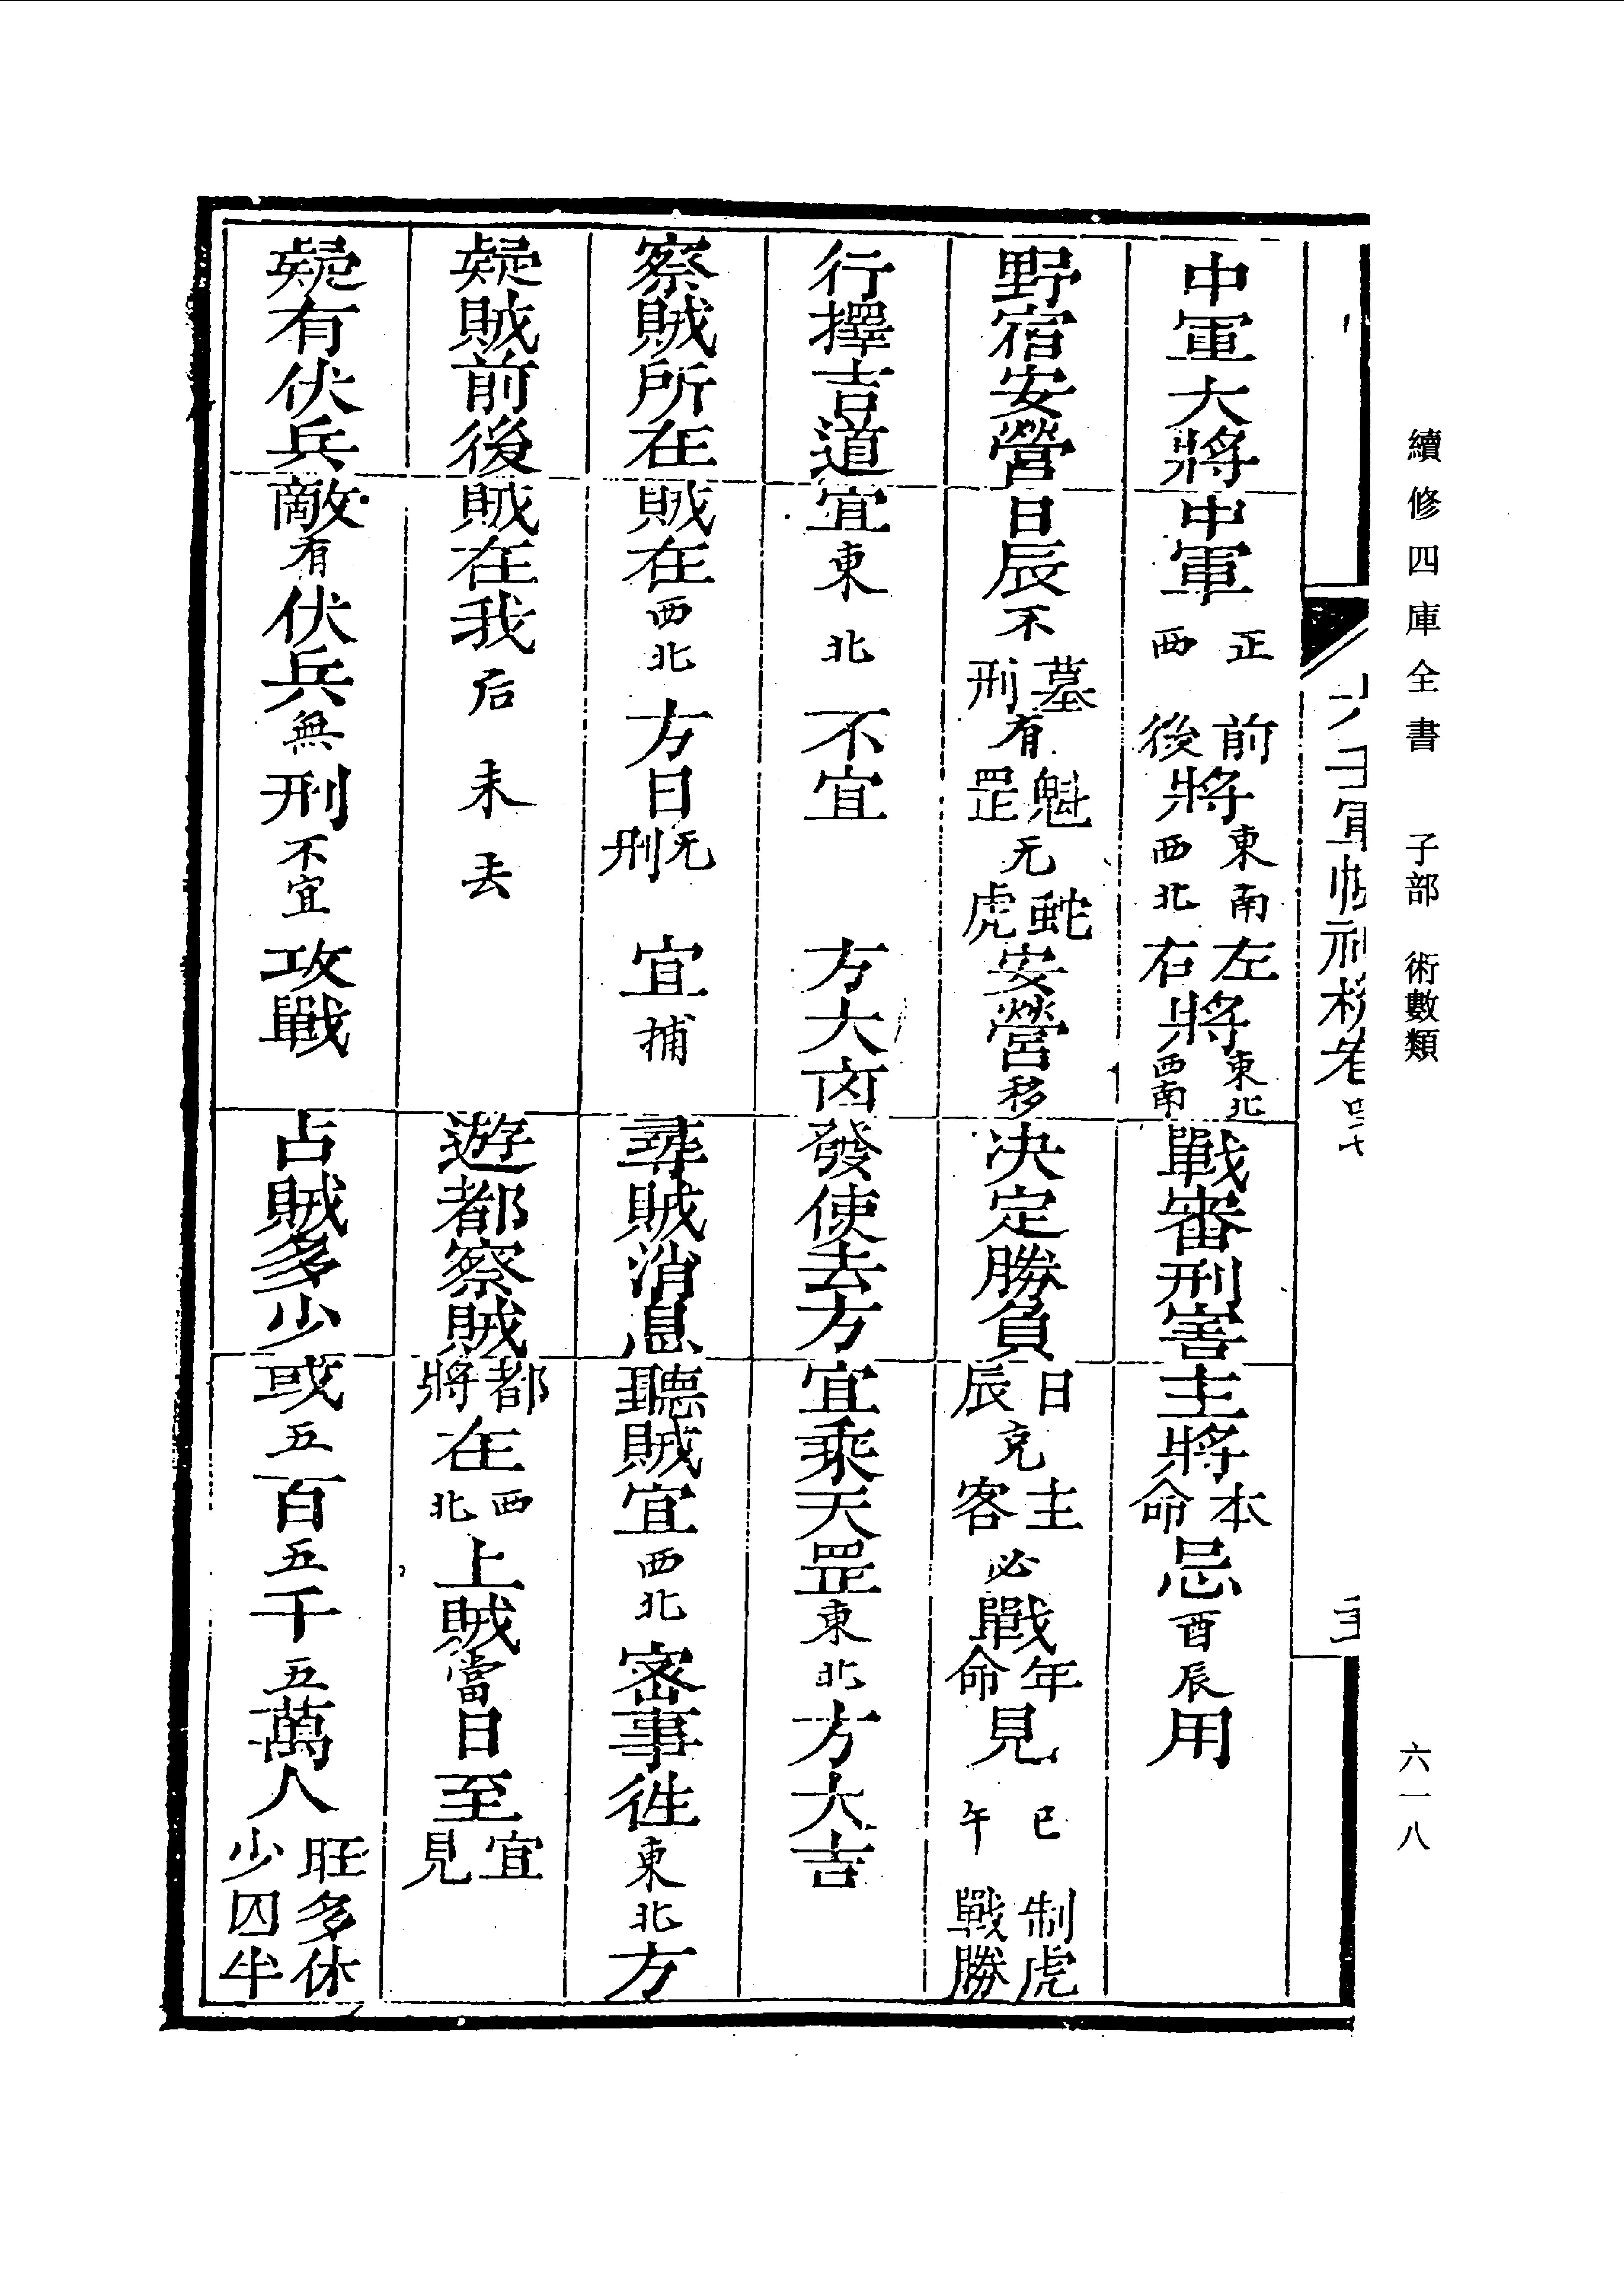 續修四庫全書 子部 術數類
六一八
中軍大將 中軍正西 前後將東南西北 左右將東北西南 戰審刑害 主將本命忌酉辰用
野宿安營 日辰不墓刑有魁罡无蛇虎安營移 決定勝負 日辰克主客必戰年命見巳午制虎戰勝
行擇吉道 宜東北不宜 方大凶 發使去方 宜乘天罡東北方大吉
察賊所在 賊在西北方日无刑 宜捕 尋賊消息 聽賊宜西北密事徃東北方
疑賊前後 賊在我后未去 遊都察賊 都將在西北上賊當日至宜見
疑有伏兵 敵有伏兵無刑不宜攻戰 占賊多少 或五百五千五萬人旺多休少囚半